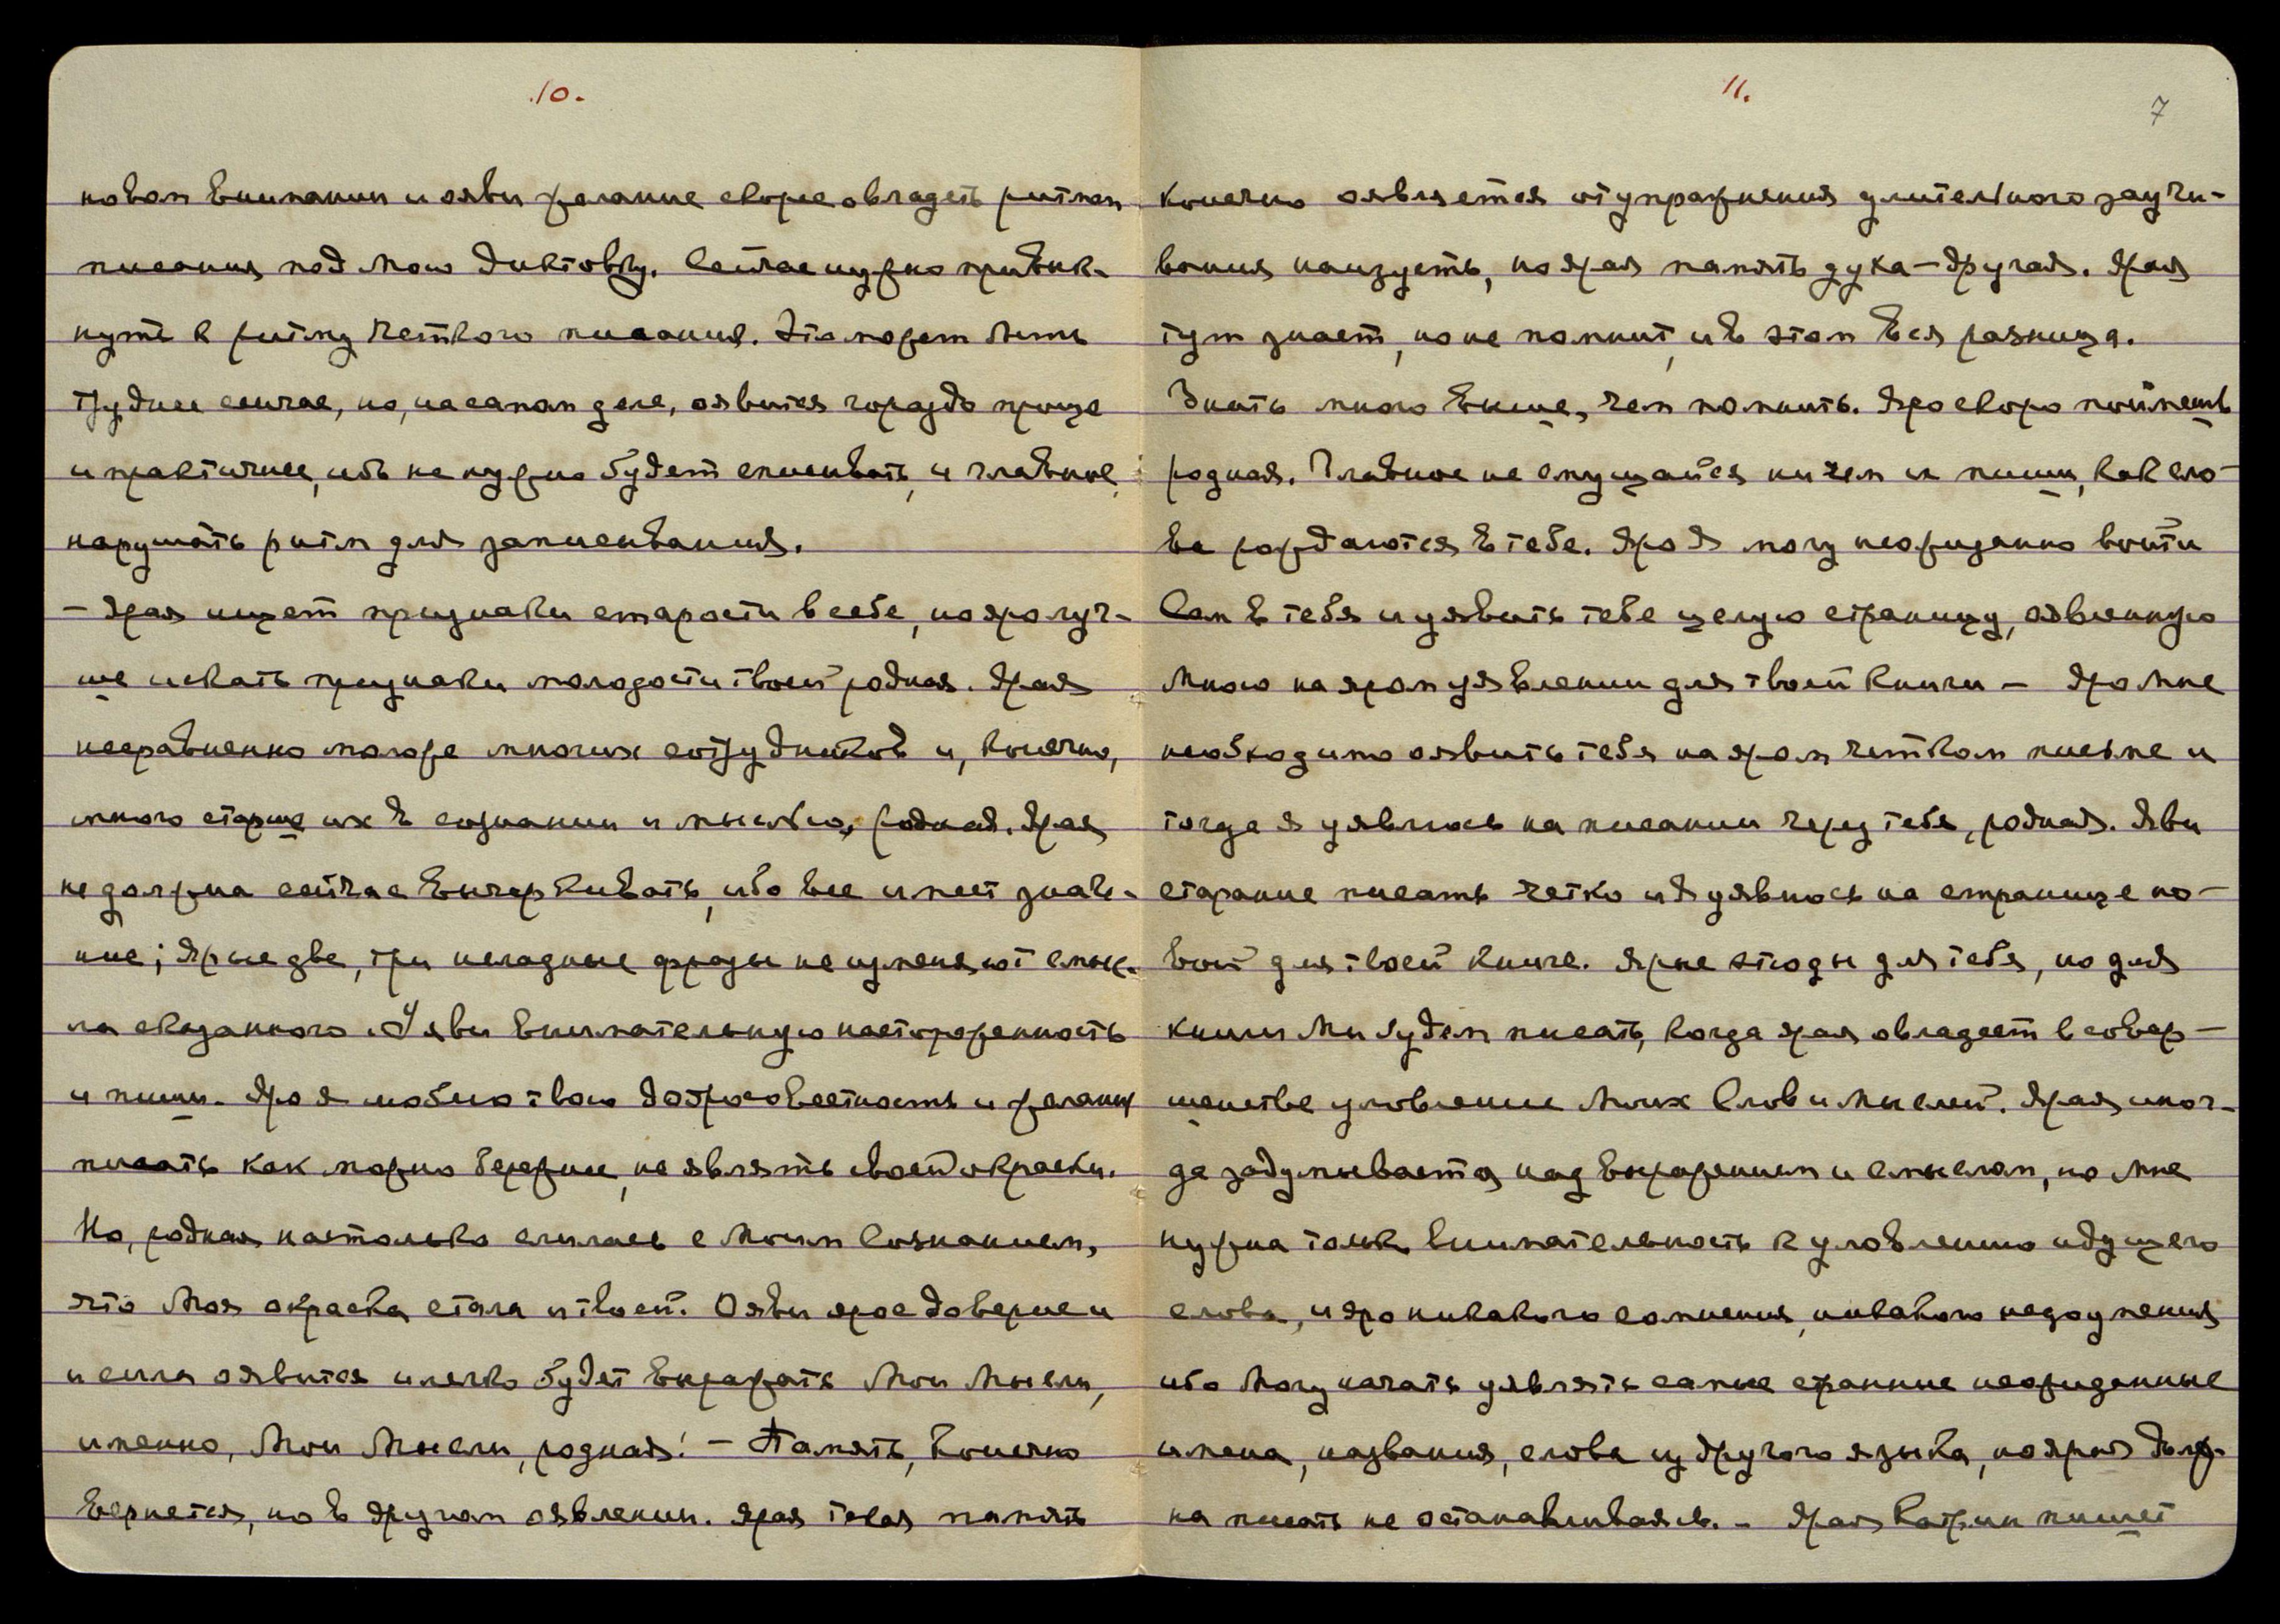 10.
новом внимании и яви желание скорее овладеть ритмом
писания под мою диктовку. Сейчас нужно привык-
нуть к ритму четкого писания. Это может лишь
труднее сейчас, но, на самом деле, оявится гораздо проще
и практичнее, ибо не нужно будет списывать, и главное,
нарушать ритм для записывания.
— Ярая ищет признаки старости в себе, но яро луч-
ше искать признаки молодости твоей родная. Ярая
несравненно моложе многих сотрудников и, конечно,
много старше их в сознании и мыслью, родная. Ярая
не должна сейчас вычеркивать, ибо все имеет значе-
ние; Ярые две, три неладные фразы не изменяют смыс-
ла сказанного. Уяви внимательную настороженность
и пиши. Яро я люблю твою добросовестность и желание
писать как можно бережнее, не являть своей окраски.
Но, родная настолько слилась с Моим Сознанием,
что Моя окраска стала и твоей. Ояви ярое доверие и
и сила оявится и легко будет выражать Мои Мысли,
именно, Мои Мысли, родная! — Память, конечно
вернется, но в другом оявлении. Ярая такая память
11.
7
конечно оявляется от упражнения длительного заучи-
вания наизусть, но ярая память духа — другая. Ярая
тут знает, но не помнит, и в этом вся разница.
Знать много выше, чем помнить. Яро скоро поймешь
родная. Главное не смущайся ни чем и пиши, как сло-
ва рождаются в тебе. Яро Я могу неожиданно войти
Сам в тебя и уявить тебе целую страницу, оявленную
Мною на яром уявлении для твоей книги — Яро Мне
необходимо оявить тебя на яром четком письме и
тогда я уявлюсь на писании через тебя, родная. Яви
старание писать четко и Я уявлюсь на странице но-
вой для твоей книге. Ярые этюды для тебя, но для
книги Мы будем писать, когда ярая овладеет в совер-
шенстве уловление Моих Слов и Мыслей. Ярая иног-
да задумывается над выражением и смыслом, но Мне
нужна только внимательность к уловлению идущего
слова, и яро никакого сомнения, никакого недоумения
ибо Могу начать уявлять самые странные неожиданные
имена, названия, слова из другого языка, но ярая долж-
на писать не останавливаясь. — Ярая Катрин пишет